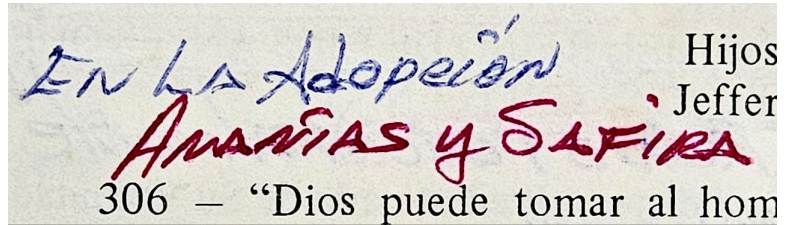 EN LA AdopciÓN
Hijos
Jeffer
ANANÍAS y SAFIRA
306 — “Dios puede tomar al hom